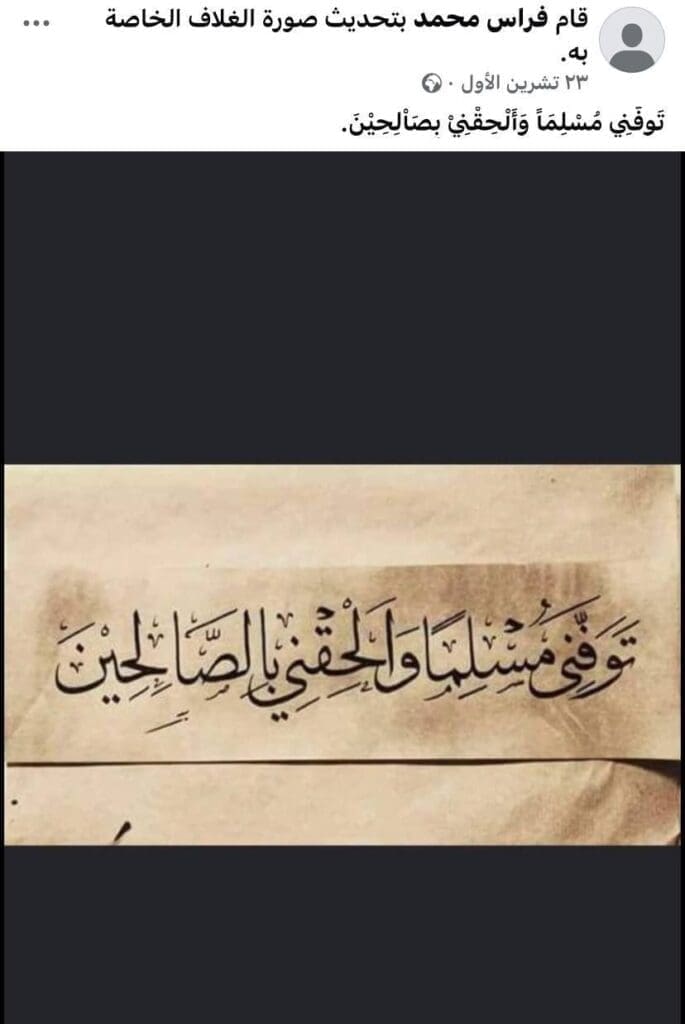 قام فراس محمد بتحديث صورة الغلاف الخاصة
به.
٢٣ تشرين الأول ·
تَوفَنِي مُسْلِمَاً وَأَلْحِقْنِيْ بِصَاْلِحِيْنَ.
تَوَفَّنِي مُسْلِمًا وَأَلْحِقْنِي بِالصَّالِحِيْنَ